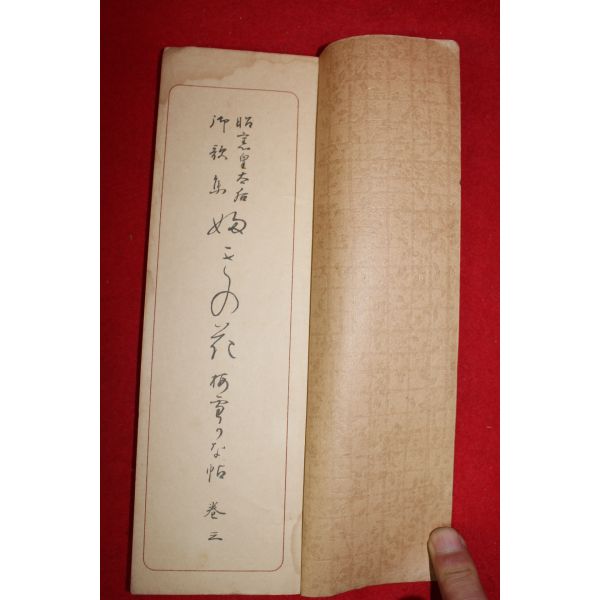 昭憲皇太后
御歌集
の花
梅雪かな帖
巻三